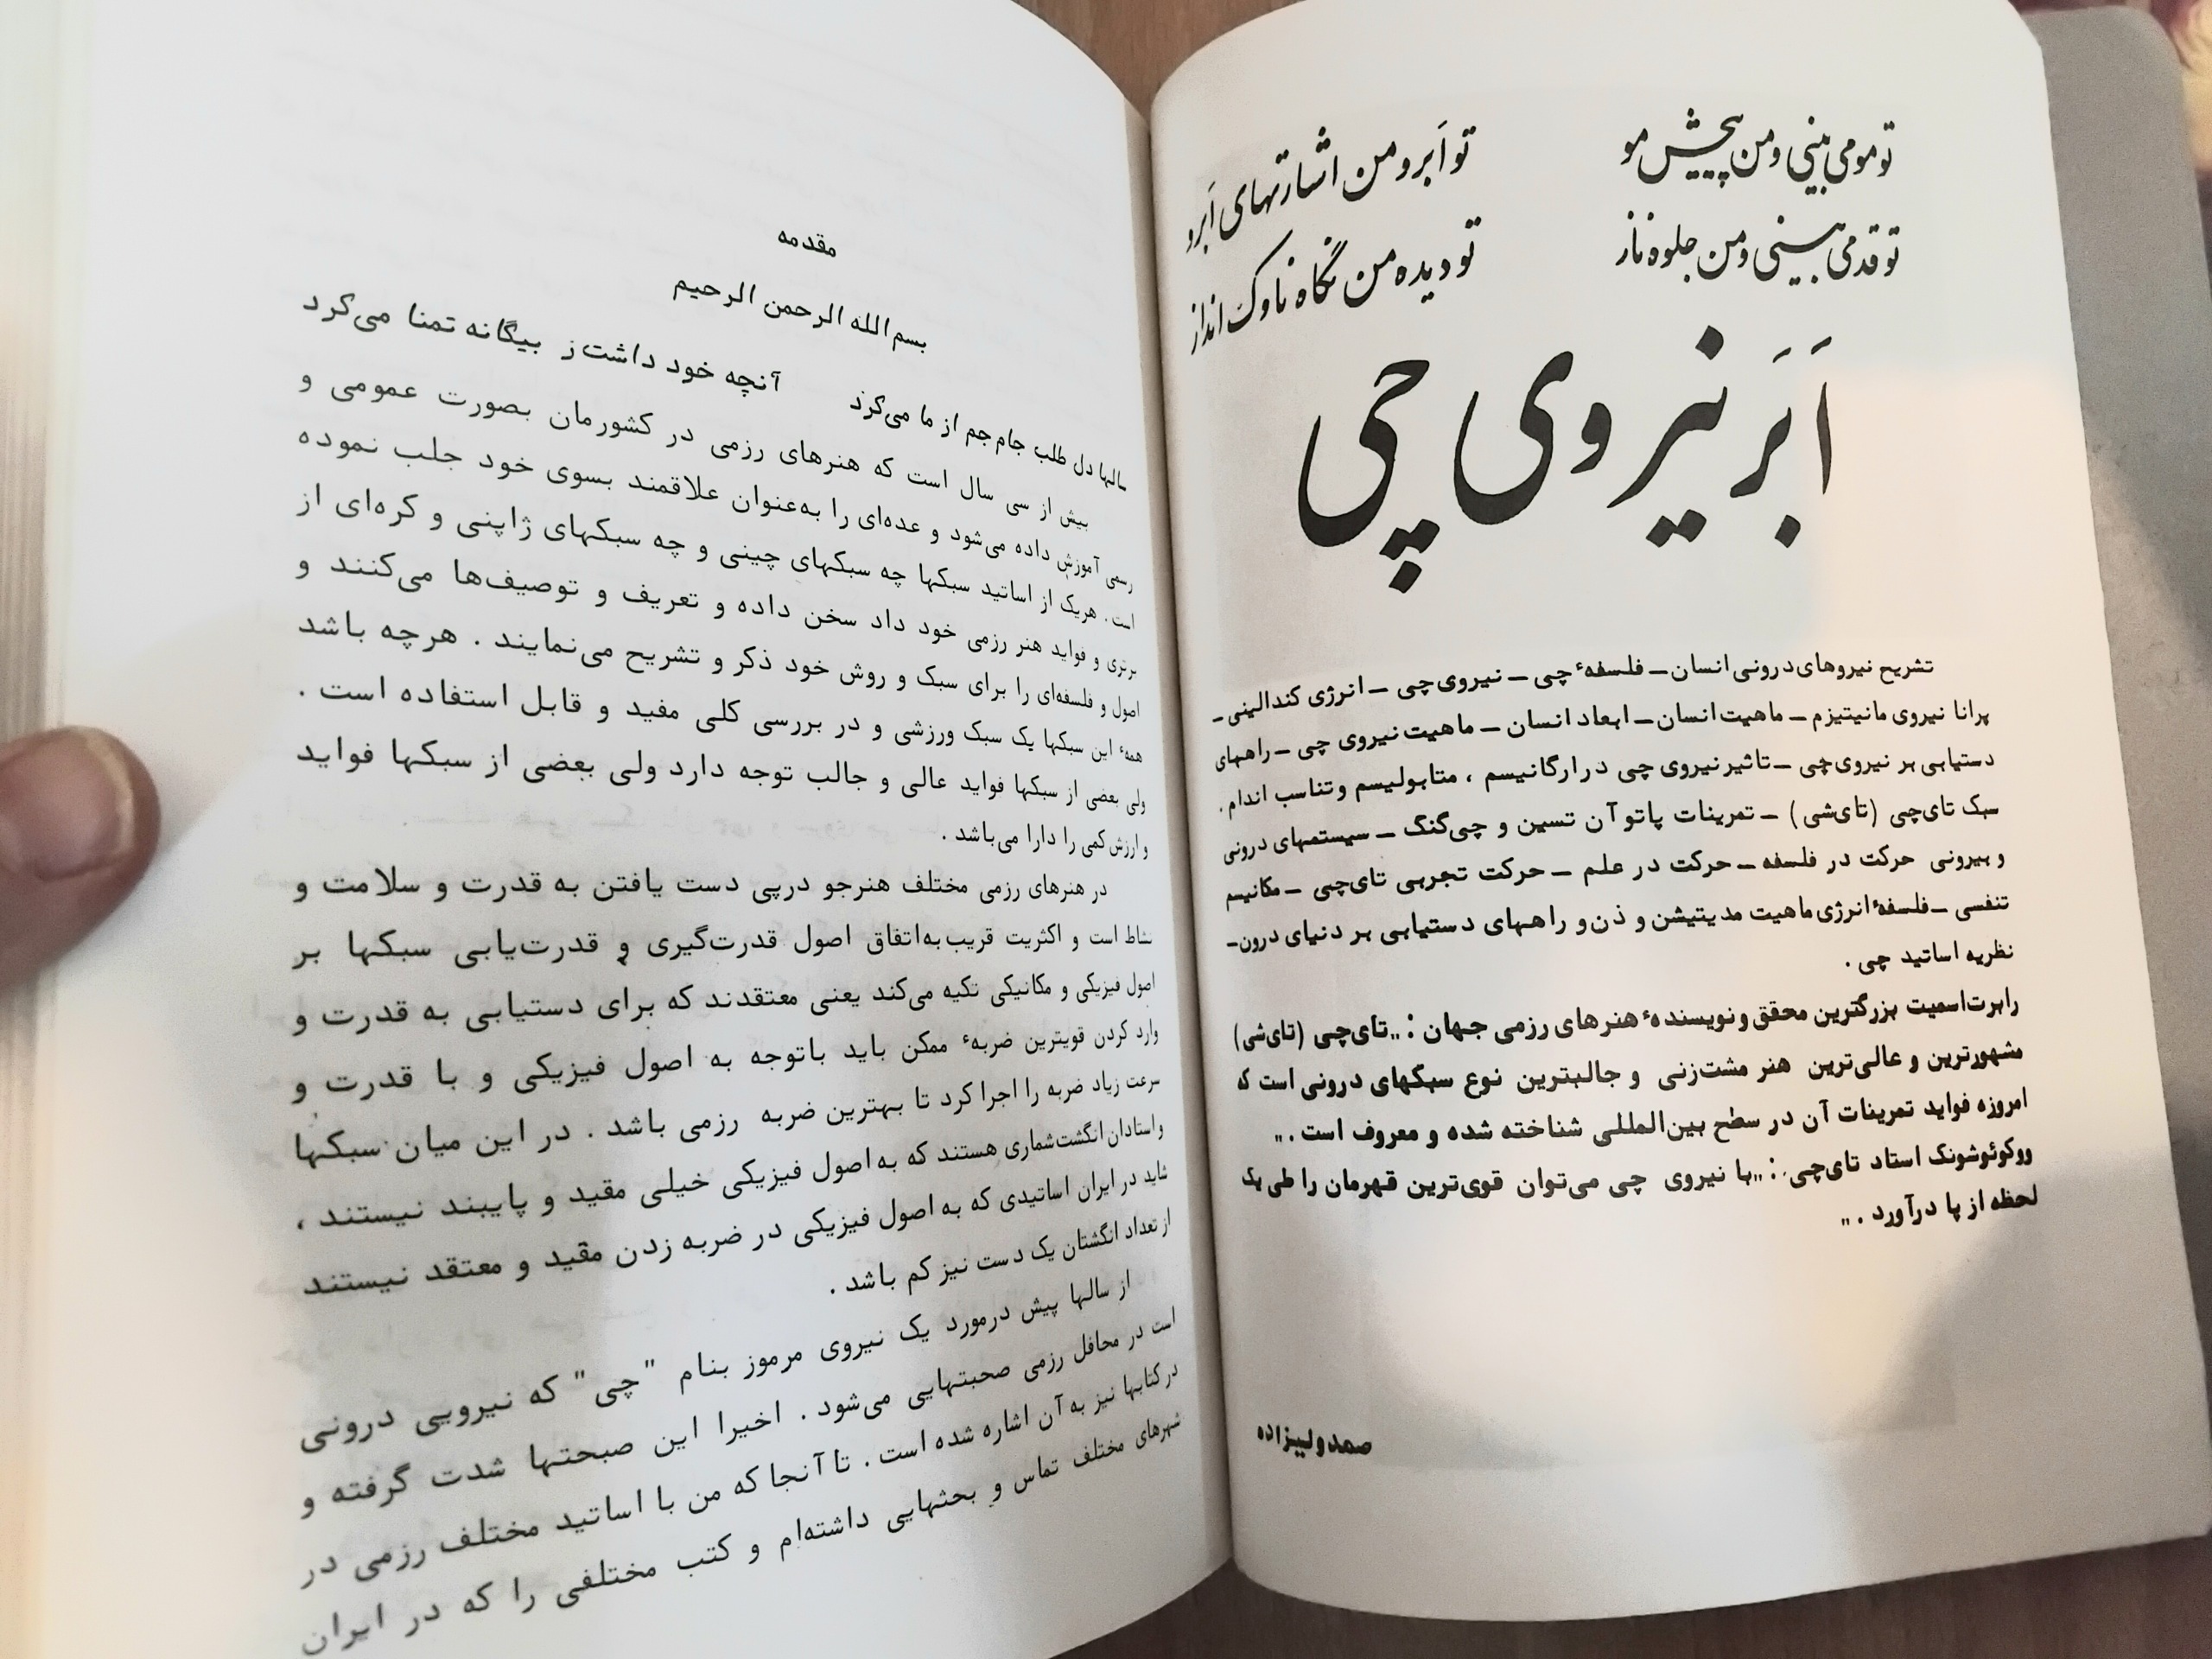 تو مو می بینی و من پیچش مو
تو اَبرو من اشارتهای اَبرو
تو قد می بینی و من جلوه ناز
تو دیده من نگاه ناوک انداز
اَبَر نیروی چی
تشریح نیروهای درونی انسان ــ فلسفهٔ چی ــ نیروی چی ــ انرژی کندالینی ــ
پرانا نیروی مانیتیزم ــ ماهیت انسان ــ ابعاد انسان ــ ماهیت نیروی چی ــ راههای
دستیابی بر نیروی چی ــ تاثیر نیروی چی در ارگانیسم ، متابولیسم و تناسب اندام .
سبک تای‌چی (تای‌شی) ــ تمرینات پاتوآن تسین و چی‌گنگ ــ سیستمهای درونی
و بیرونی حرکت در فلسفه ــ حرکت در علم ــ حرکت تجربی تای‌چی ــ مکانیسم
تنفسی ــ فلسفهٔ انرژی ماهیت مدیتیشن و ذن و راههای دستیابی بر دنیای درون ــ
نظریه اساتید چی .
رابرت‌اسمیت بزرگترین محقق و نویسندهٔ هنرهای رزمی جهان : "تای‌چی (تای‌شی)
مشهورترین و عالی‌ترین هنر مشت‌زنی و جالبترین نوع سبکهای درونی است که
امروزه فواید تمرینات آن در سطح بین‌المللی شناخته شده و معروف است . "
ووکوئوشونک استاد تای‌چی : "با نیروی چی می‌توان قوی‌ترین قهرمان را طی یک
لحظه از پا درآورد . "
صمدولیزاده
مقدمه
بسم الله الرحمن الرحیم
سالها دل طلب جام جم از ما می‌کرد آنچه خود داشت ز بیگانه تمنا می‌کرد
بیش از سی سال است که هنرهای رزمی در کشورمان بصورت عمومی و
رسمی آموزش داده می‌شود و عده‌ای را به‌عنوان علاقمند بسوی خود جلب نموده
است . هریک از اساتید سبکها چه سبکهای چینی و چه سبکهای ژاپنی و کره‌ای از
برتری و فواید هنر رزمی خود داد سخن داده و تعریف و توصیف‌ها می‌کنند و
اصول و فلسفه‌ای را برای سبک و روش خود ذکر و تشریح می‌نمایند . هرچه باشد
همهٔ این سبکها یک سبک ورزشی و در بررسی کلی مفید و قابل استفاده است .
ولی بعضی از سبکها فواید عالی و جالب توجه دارد ولی بعضی از سبکها فواید
و ارزش کمی را دارا می‌باشد .
در هنرهای رزمی مختلف هنرجو درپی دست یافتن به قدرت و سلامت و
نشاط است و اکثریت قریب به‌اتفاق اصول قدرت‌گیری و قدرت‌یابی سبکها بر
اصول فیزیکی و مکانیکی تکیه می‌کند یعنی معتقدند که برای دستیابی به قدرت و
وارد کردن قویترین ضربهٔ ممکن باید باتوجه به اصول فیزیکی و با قدرت و
سرعت زیاد ضربه را اجرا کرد تا بهترین ضربه رزمی باشد . در این میان سبکها
و استادان انگشت‌شماری هستند که به اصول فیزیکی خیلی مقید و پایبند نیستند ،
شاید در ایران اساتیدی که به اصول فیزیکی در ضربه زدن مقید و معتقد نیستند
از تعداد انگشتان یک دست نیز کم باشد .
از سالها پیش درمورد یک نیروی مرموز بنام "چی" که نیرویی درونی
است در محافل رزمی صحبتهایی می‌شود . اخیرا این صبحتها شدت گرفته و
در کتابها نیز به آن اشاره شده است . تا آنجا که من با اساتید مختلف رزمی در
شهرهای مختلف تماس و بحثهایی داشته‌ام و کتب مختلفی را که در ایران